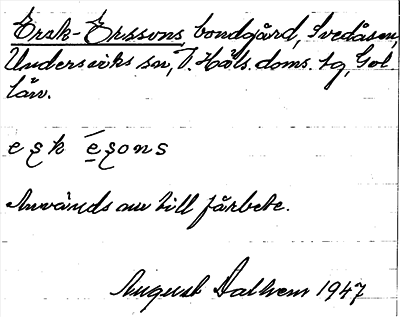 Ersk-Erssons bondgård, Svedåsen,
Undersviks sn, V. Häls. doms. tg, Gvl
län.
esk ésons
Används nu till fårbete.
August Dalhem 1947